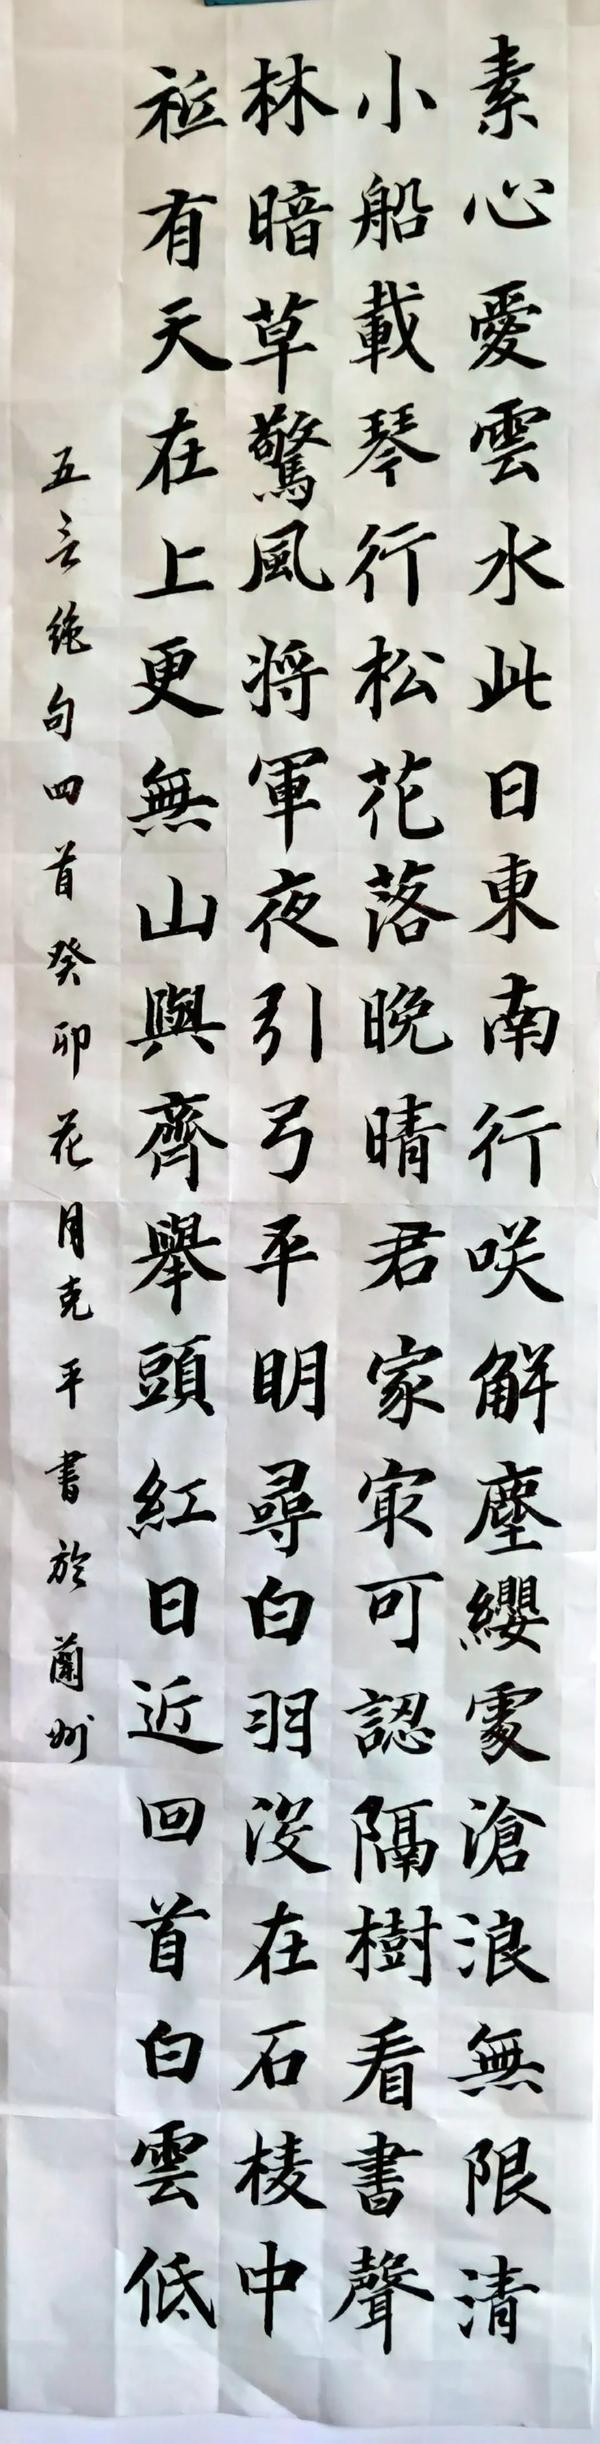 素心愛雲水此日東南行咲解塵纓處滄浪無限清
小船載琴行松花落晚晴君家冣可認隔樹看書聲
林暗草驚風将軍夜引弓平明尋白羽没在石棱中
祗有天在上更無山與齊舉頭紅日近回首白雲低
五言绝句四首癸卯花月克平書於蘭州